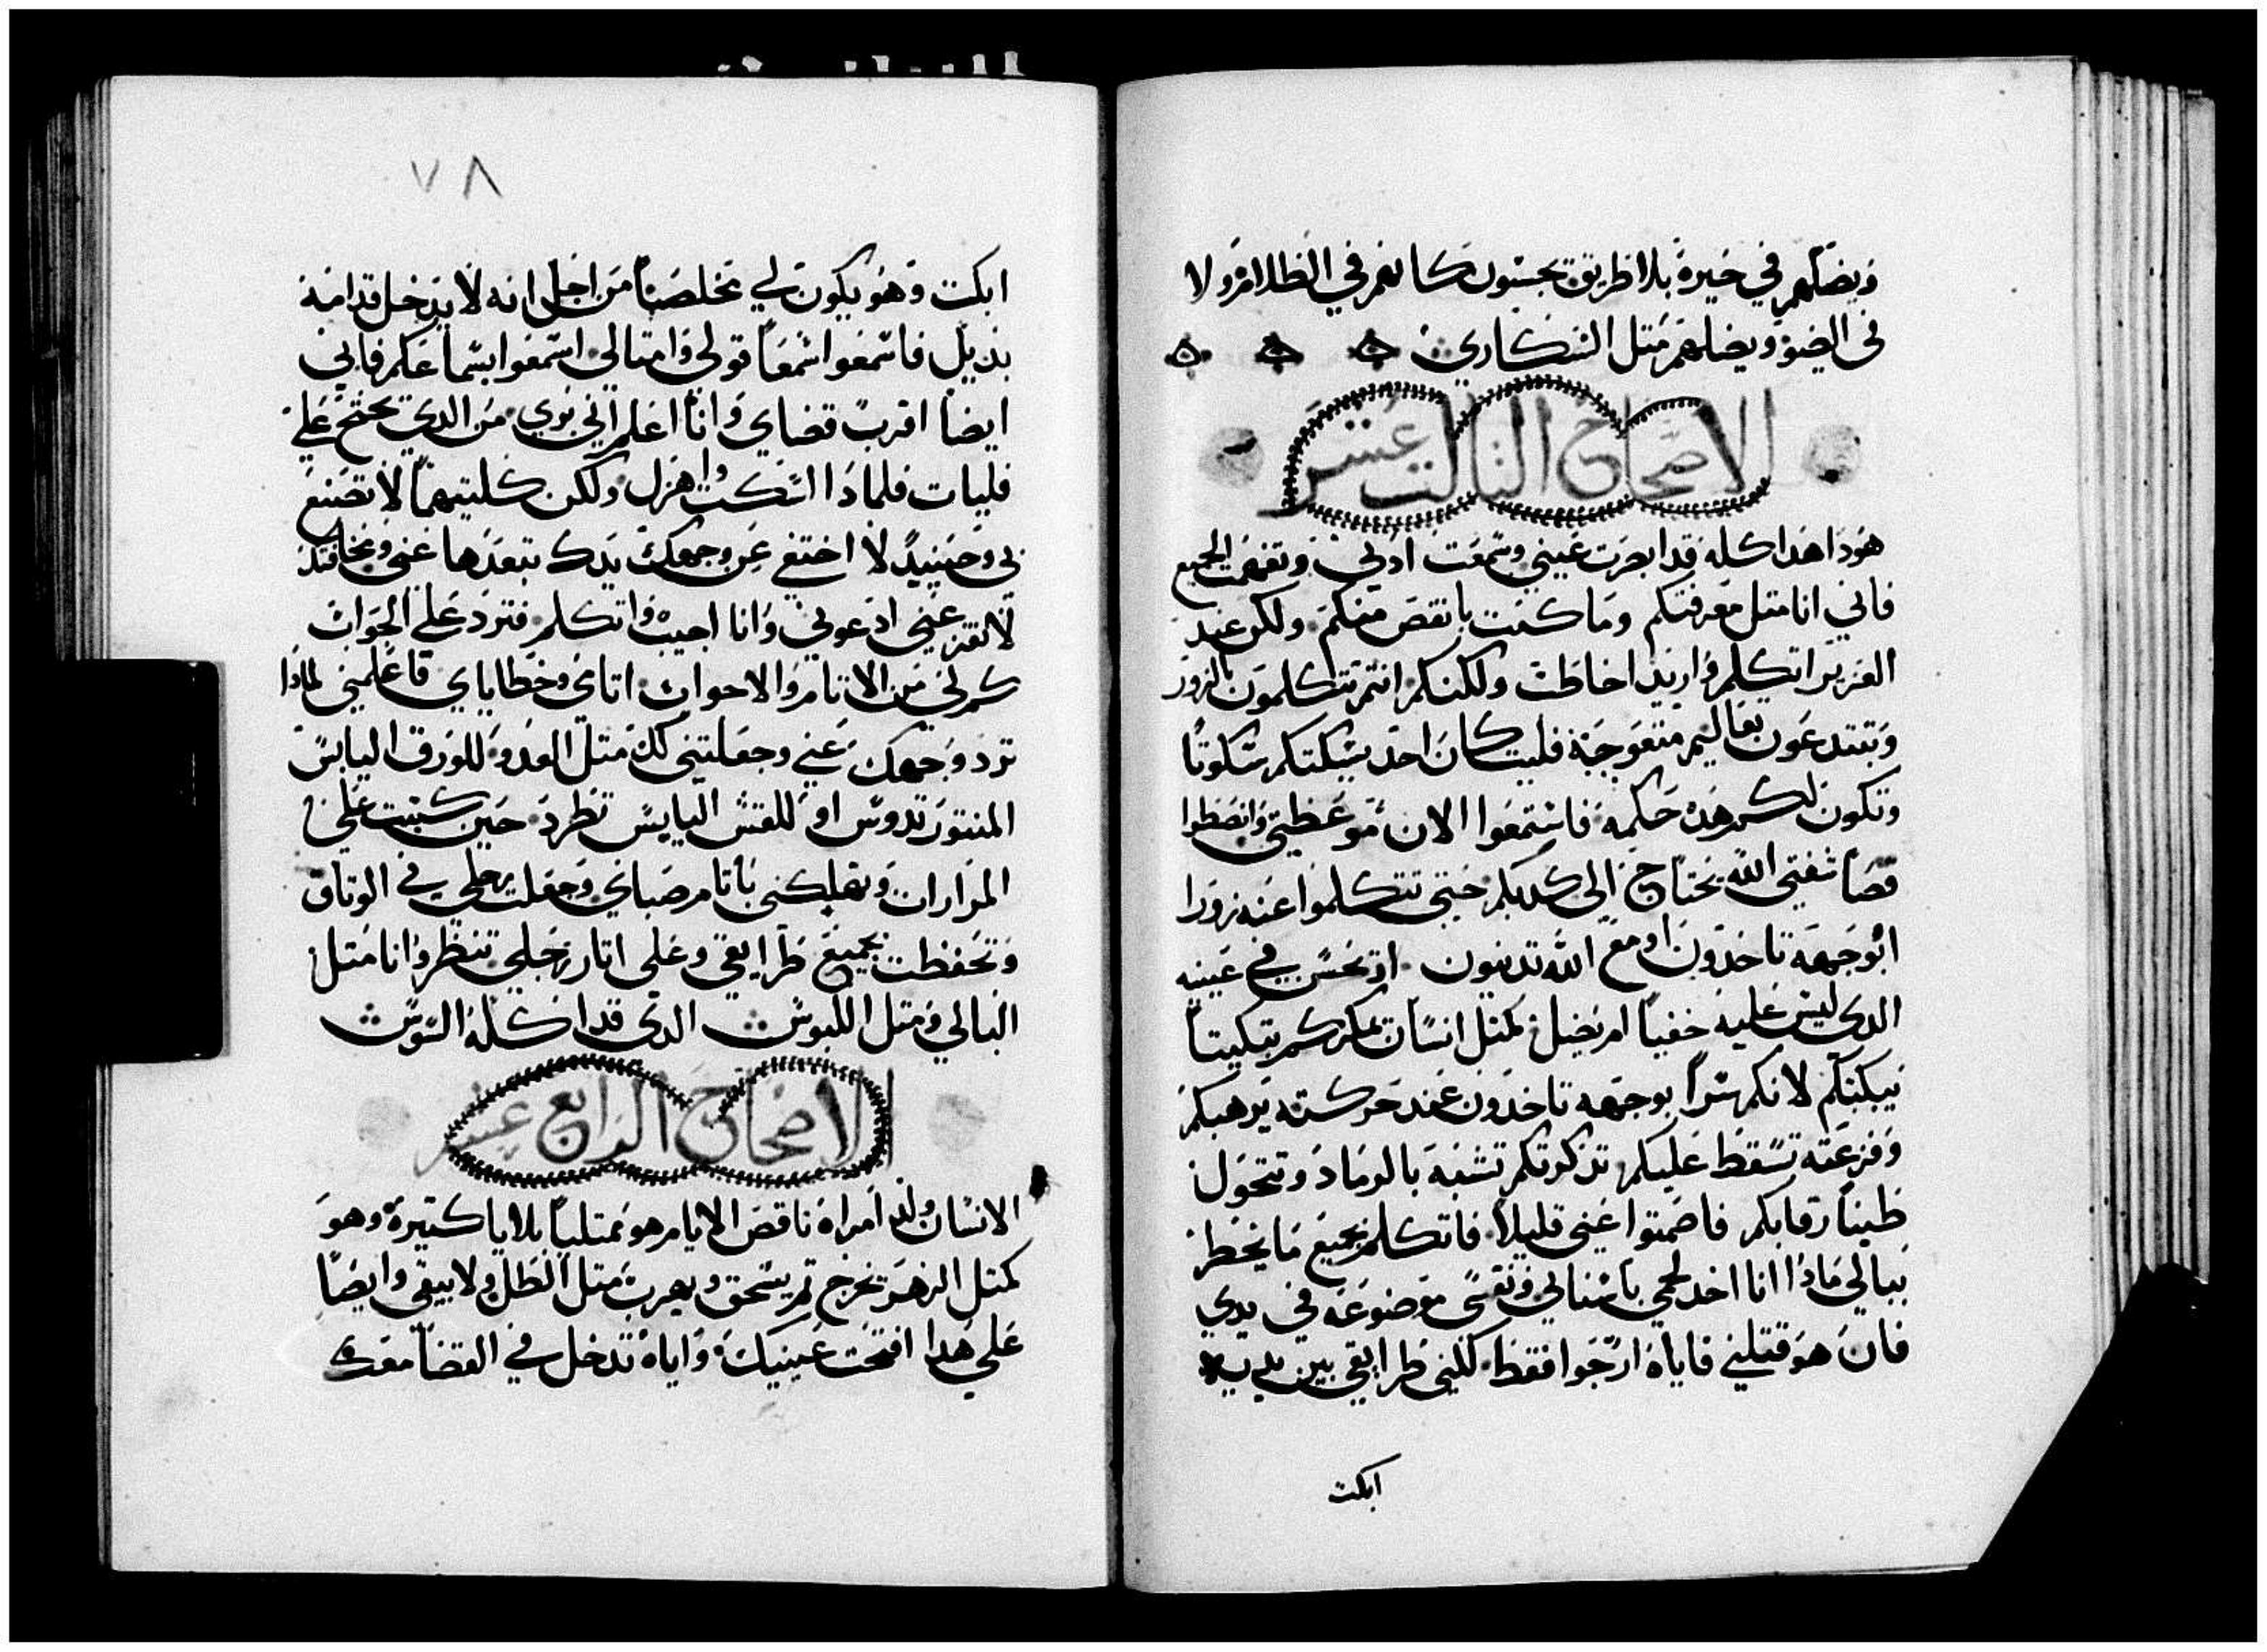 ويضلهم في حيرة بلا طريق يجسون كانهم في الظلام ولا
في الضو ويضلهم مثل السكاري
الاصحاح التالت عشر
هودا هدا كله قد ابصرت عيني وسمعت ادني وتفهمت الجميع
فاني انا متل معرفتكم وما كنت بانقص منكم ولكن عند
العزيز اتكلم واريد احاظت ولكنكم انتم تتكلمون بالزور
وتبتدعون تعاليم متعوجة فليت كان احد يسكتكم سكوتا
وتكون لكم هده حكمه فاستمعوا الان موعظتي وانصطوا
قصا شفتي الله يحتاج الي كدبكم حتي تتكلموا عنه زورا
ابوجهه تاخدون او مع الله تدينون او تحسن في عينيه
الدي ليس عليه خفيا ام يضيل كمتل انسان بمكركم تبكيتا
يبكتكم لانكم سرا بوجهه تاخدون عند حركته يرهبكم
وفزعته تسقط عليكم تدكرتكم تشبه بالرماد وتتحول
طينا رقابكم فاصمتوا عني قليلا فاتكلم بجميع ما يخطر
ببالي مادا انا اخد لحمي باسناني ونفسي موضوعه في يدي
فان هو قتلني فاياه ارجوا فقط لكني طرايقي بين يديه
ابكت
٧٨
ابكت وهو يكون لي مخلصا من اجل انه لا يدخل قدامه
بديل فاسمعوا سمعا قولي وامتالي اسمعوا بسماعكم فاني
ايضا اقرب قضاي وانا اعلم اني بري من الدي يحتج علي
فليات فلمادا اسكت واهزل ولكن كلتيهما لا تصنع
بي وحينيد لا اختفي عن وجهك يدك تبعدها عني ومخافتك
لا تفزعني ادعوني وانا اجيب واتكلم فترد علي الجواب
كم لي من الاتام والاحواب اتامي وخطاياي فاعلمني لمادا
ترد وجهك عني وجعلتني لك متل العدو للورق اليابس
المنتور تدوس او للقش اليابس تطرد حين كتبت علي
المرارات وتهلكني باتام صباي وجعلت رجلي في الوتاق
وتحفظت بجميع طرايقي وعلي اتار رجلي تنظر وانا متل
البالي ومتل اللبوس الدي قد اكله السوس
الاصحاح الرابع عشر
الانسان ولد امراة ناقص الايام هو ممتليا بلايا كتيرة وهو
كمتل الزهر تخرج تم ينسحق ويهرب متل الظل ولا يبقي وايضا
علي هدا افتحت عينيك واياه تدخل في القضا معك